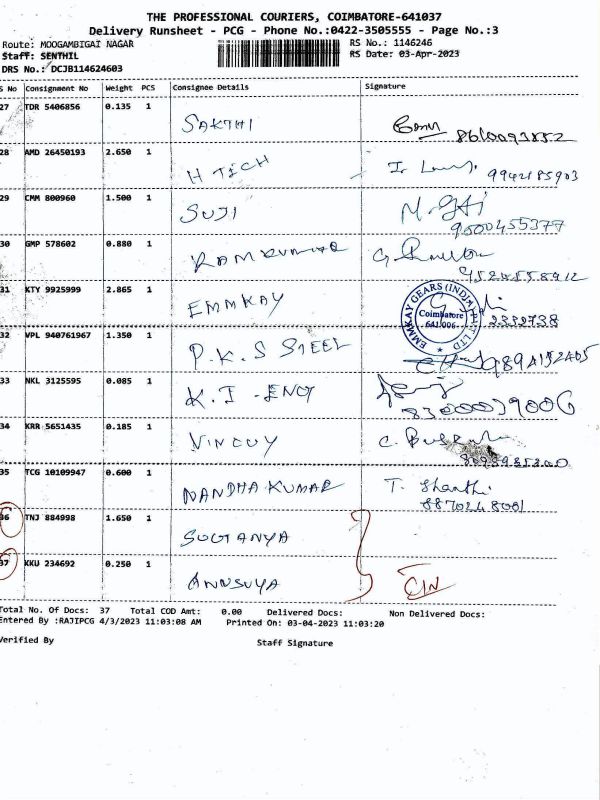 THE PROFESSIONAL COURIERS, COIMBATORE-641037
Delivery Runsheet - PCG - Phone No.:0422-3505555 - Page No.:3
Route: MOOGAMBIGAI NAGAR RS No.: 1146246
Staff: SENTHIL RS Date: 03-Apr-2023
DRS No.: DCJB114624603
S No Consignment No Weight PCS Consignee Details Signature
27 TDR 5406856 0.135 1
SAKTHI
28 AMD 26450193 2.650 1
H TECH 9942185903
29 CMM 800960 1.500 1
SUJI
9600455377
30 GMP 578602 0.880 1
RAMKUMAR
31 KTY 9925999 2.865 1
EMMKAY
EMMKAY GEARS (INDIA) PVT LTD
Coimbatore
641 006
32 VPL 940761967 1.350 1
P.K.S STEEL
33 NKL 3125595 0.085 1
K.I-ENG
34 KRR 5651435 0.185 1
35 TCG 10109947 0.600 1
NANDHA KUMAR T. Shanthi
36 TNJ 884998 1.650 1
37 KKU 234692 0.250 1
ANNSUYA
Total No. Of Docs: 37 Total COD Amt: 0.00 Delivered Docs: Non Delivered Docs:
Entered By :RAJIPCG 4/3/2023 11:03:08 AM Printed On: 03-04-2023 11:03:20
Verified By Staff Signature